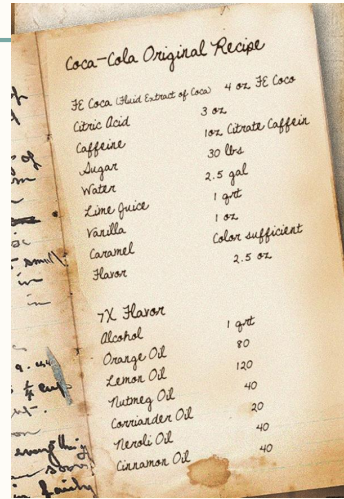 Coca-Cola Original Recipe
FE Coca (Fluid Extract of Coca) 4 oz FE Coco
Citric Acid 3 oz
Caffeine 1oz Citrate Caffein
Sugar 30 lbs
Water 2.5 gal
Lime Juice 1 qrt
Vanilla 1 oz
Caramel Color sufficient
Flavor 2.5 oz
7X Flavor
Alcohol 1 qrt
Orange Oil 80
Lemon Oil 120
Nutmeg Oil 40
Corriander Oil 20
Neroli Oil 40
Cinnamon Oil 40